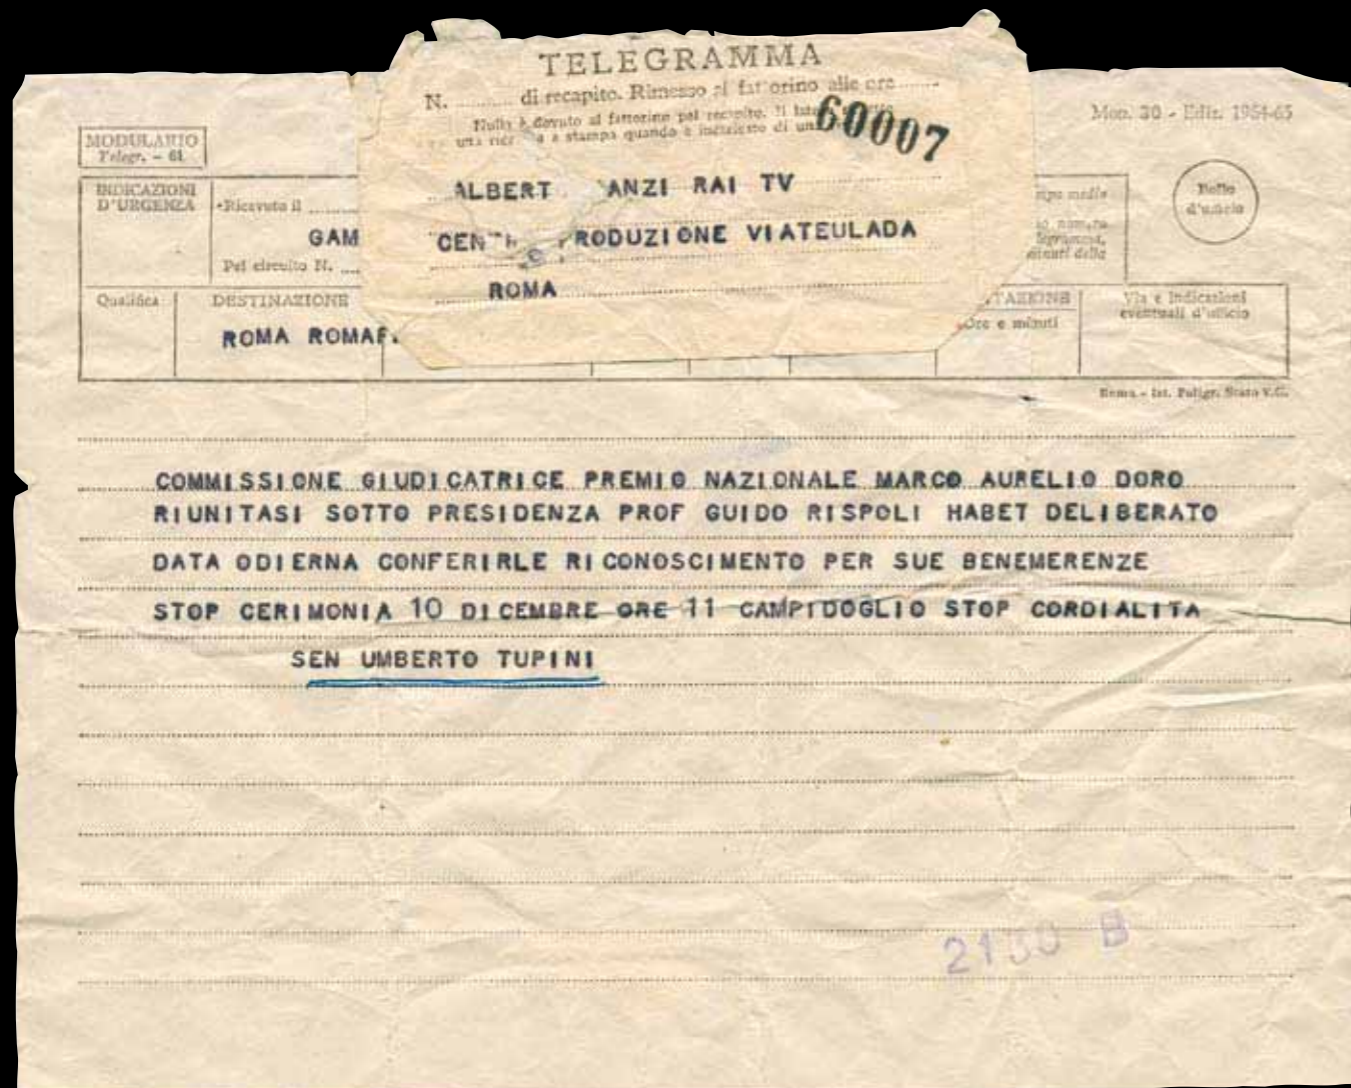 TELEGRAMMA
N. di recapito. Rimesso al fattorino alle ore
Nulla è dovuto al fattorino pel recapito. Il
una a stampa quando è incaricato di
60007
Mod. 30 - Ediz. 1964-65
MODULARIO
Telegr. - 61
ALBERT ANZI RAI TV
CENT RODUZIONE VIATEULADA
ROMA
INDICAZIONI
D'URGENZA
Ricevuto il
GAM
Pel circuito N.
Bollo
d'ufficio
Qualifica
DESTINAZIONE
ROMA ROMAF.
Ore e minuti
Via e indicazioni
eventuali d'ufficio
Roma - Ist. Poligr. Stato V.C.
COMMISSIONE GIUDICATRICE PREMIO NAZIONALE MARCO AURELIO DORO
RIUNITASI SOTTO PRESIDENZA PROF GUIDO RISPOLI HABET DELIBERATO
DATA ODIERNA CONFERIRLE RICONOSCIMENTO PER SUE BENEMERENZE
STOP CERIMONIA 10 DICEMBRE ORE 11 CAMPIDOGLIO STOP CORDIALITA
SEN UMBERTO TUPINI
2130 B